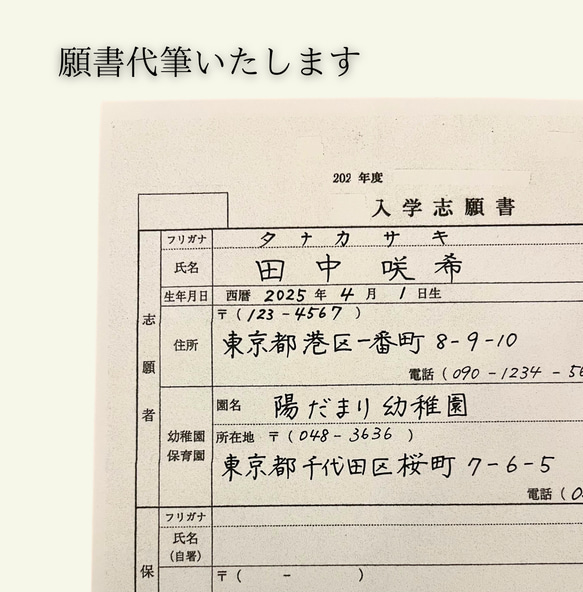 願書代筆いたします
202 年度
入学志願書
フリガナ タナカ サキ
氏名 田中 咲希
生年月日 西暦 2025年 4月 1日生
志願者
住所 〒(123-4567)
東京都港区一番町 8-9-10
電話(090-1234-56
幼稚園
保育園
園名 陽だまり幼稚園
所在地 〒(048-3636)
東京都千代田区桜町 7-6-5
電話(0
フリガナ
氏名
(自署)
保
〒( - )